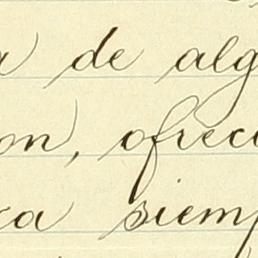 a de alg
on, ofrec
ra siemp